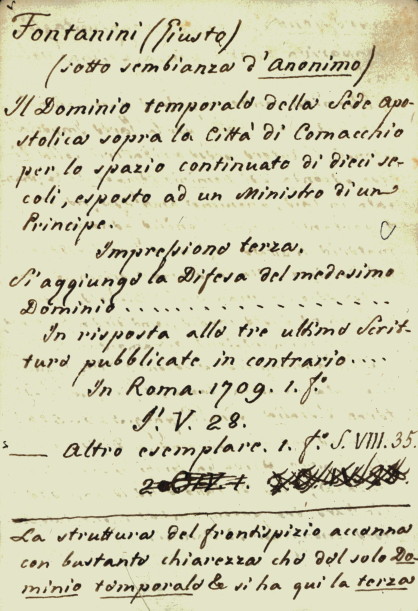 Fontanini (Giusto)
(sotto sembianza d'Anonimo)
Il Dominio temporale della Sede Apo-
stolica sopra la Città di Comacchio
per lo spazio continuato di dieci se-
coli, esposto ad un Ministro di un
Principe.
Impressione terza.
Si aggiunge la Difesa del medesimo
Dominio . . . . . . . . . . . . . . . .
In risposta alle tre ultime Scrit-
ture pubblicate in contrario....
In Roma. 1709. 1. fo.
V. 28.
— Altro esemplare. 1. fo. S. VIII. 35.
La struttura del frontispizio accenna
con bastante chiarezza che del solo Do-
minio temporale & si ha qui la terza